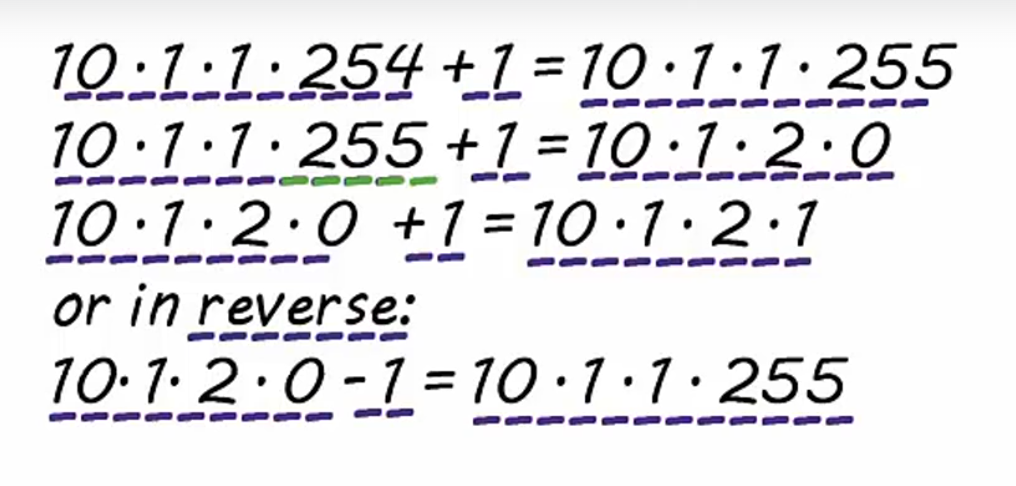 10·1·1·254 +1 = 10·1·1·255
10·1·1·255 +1 = 10·1·2·0
10·1·2·0 +1 = 10·1·2·1
or in reverse:
10·1·2·0 -1 = 10·1·1·255